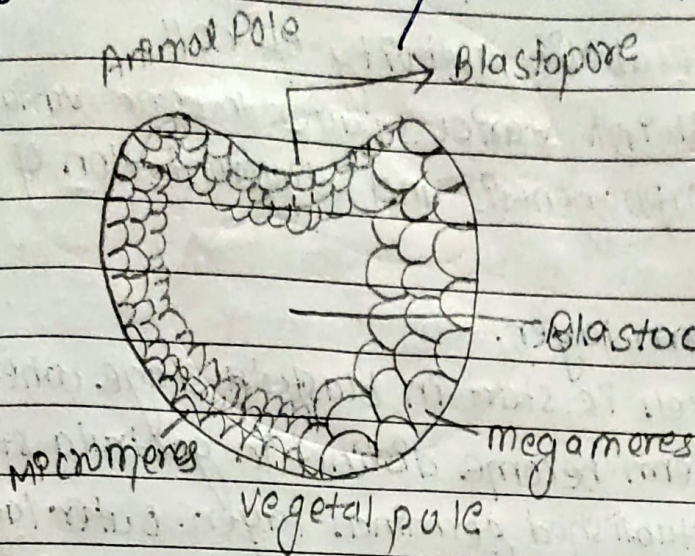 Animal Pole
Blastopore
Blastoc
megameres
Mecromeres
vegetal pole